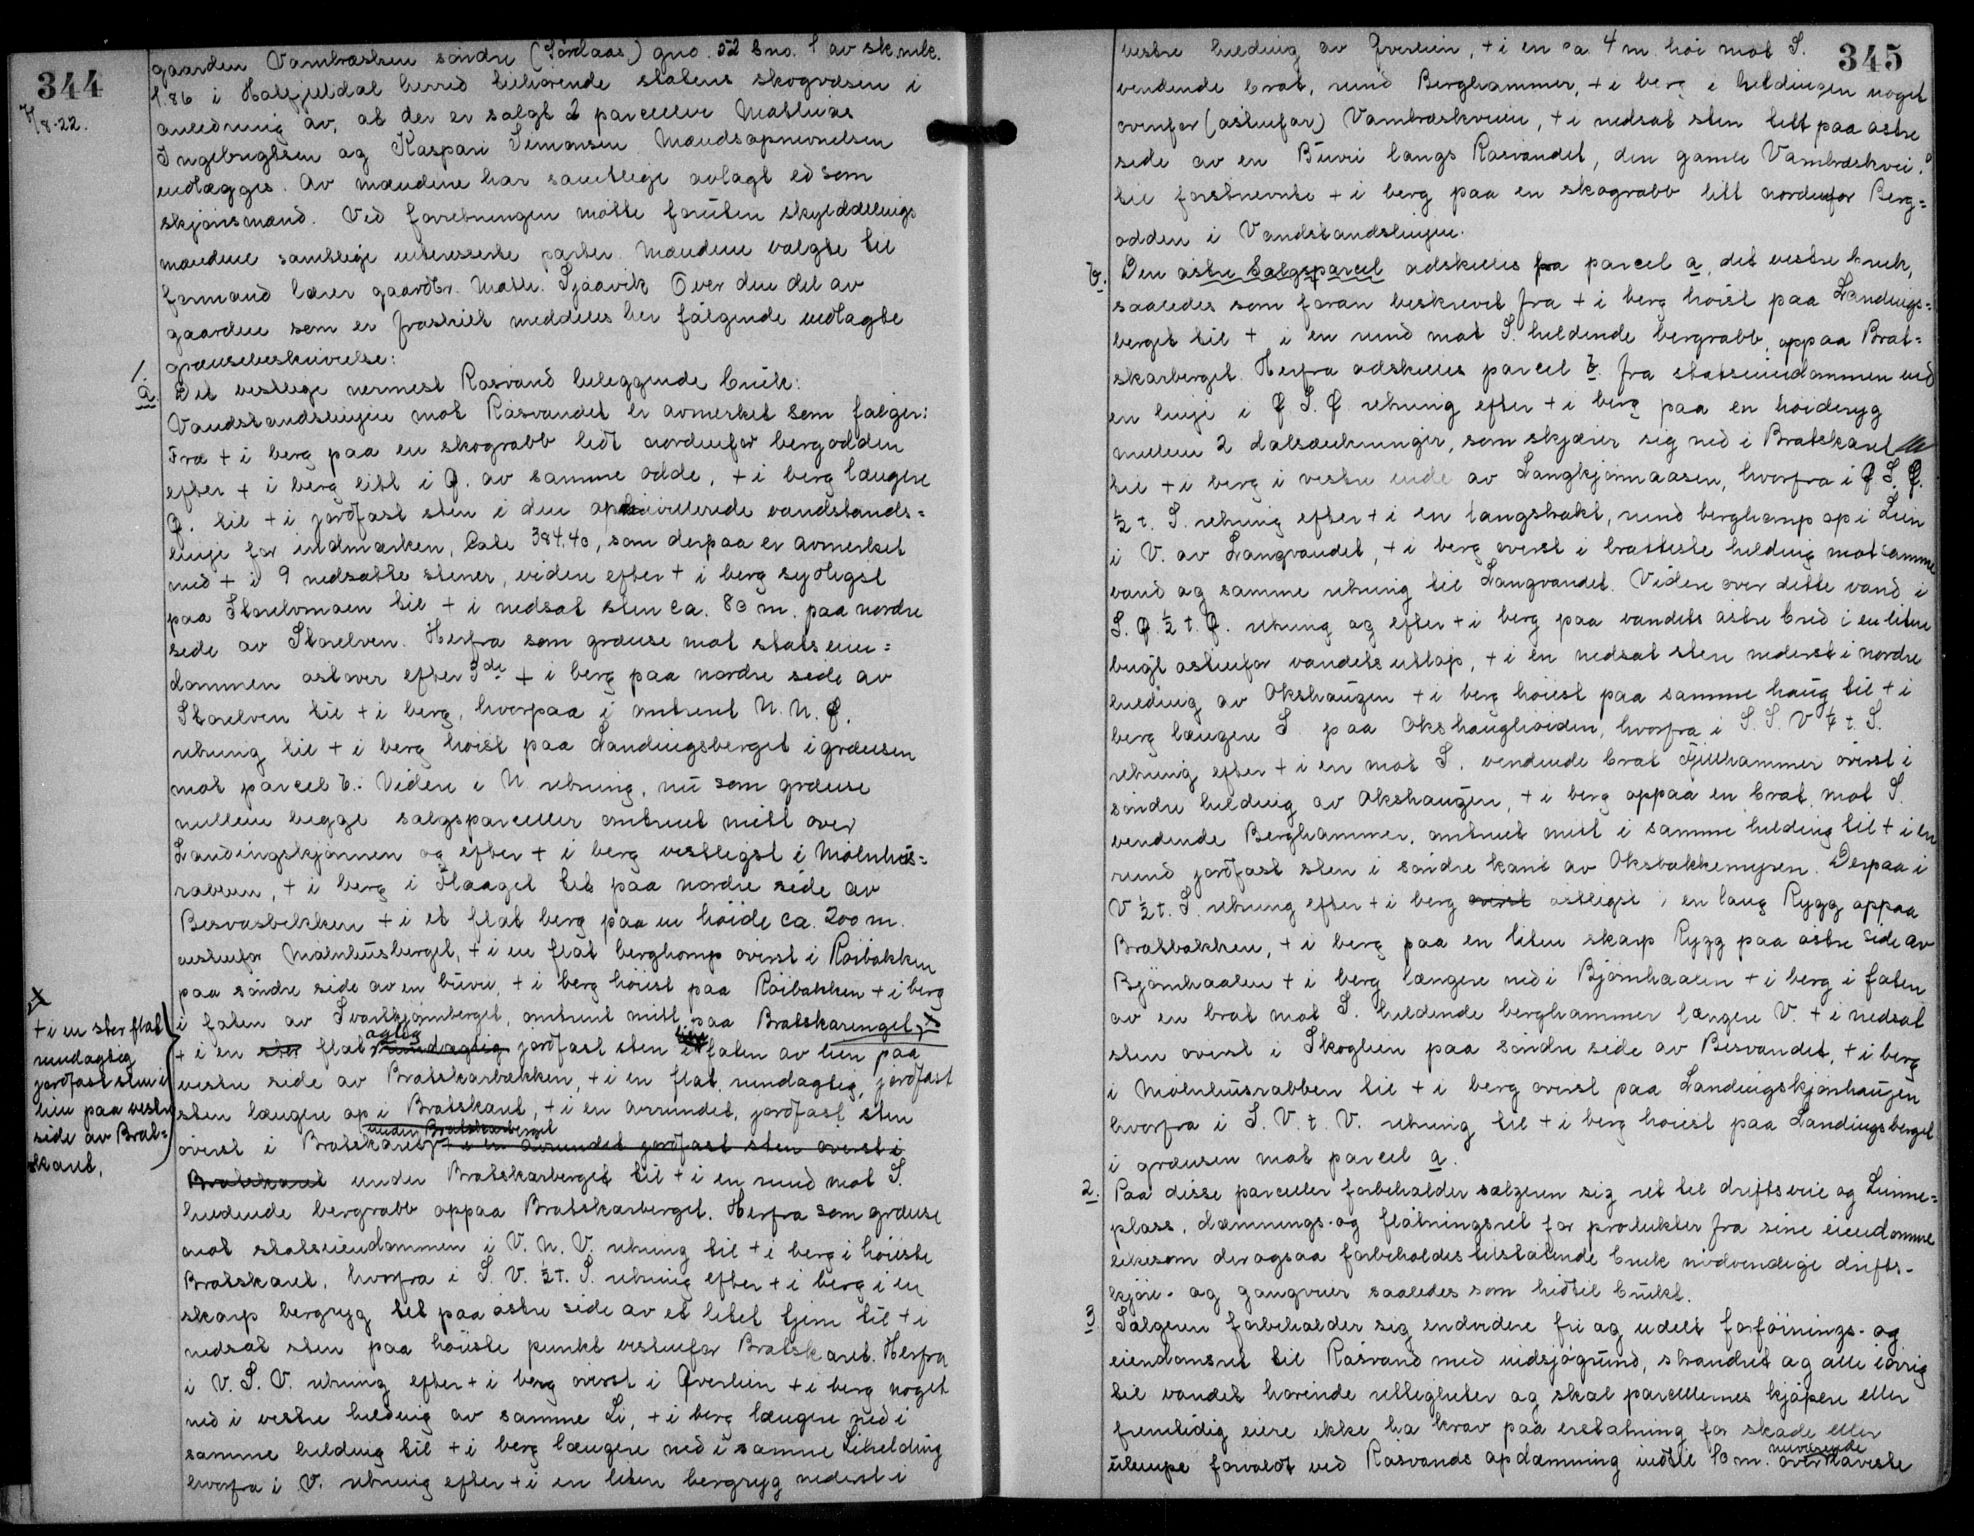 344
7/8-22.
gaarden Vambræsken söndre (Sördaas) gno. 52 bno. 1 av sk.mk.
1.86 i Hatfjeldal herred tilhörende statens skogvæsen i
anledning av, at der er solgt 2 parceller Mathias
Ingebrigtsen og Kaspari Simonsen Mandsopnevnelsen
vedlægges. Av mændene har samtlige avlagt ed som
skjönsmænd. Ved forretningen mötte foruten skylddelings
mændene samtlige interesserte parter. Mændene valgte til
formand lærer gaardbr. Math. Sjaavik Over den del av
gaarden som er fraskilt meddeles her fölgende vedtagte
grænsebeskrivelse:
1.
a. Det vestlige nermest Rösvand beliggende bruk:
Vandstandslinjen mot Rösvandet er avmerket som fölger:
Fra + i berg paa en skograbb lidt nordenfor bergodden
efter + i berg litt i Ø. av samme odde, + i berg længere
Ø. til + i jordfast sten i den opnivellerede vandstands=
linje for indmarken, Cote 384.40, som derpaa er avmerket
med + i 9 nedsatte stener, videre efter + i berg sydligst
paa Storelvmoen til + i nedsat sten ca. 80 m. paa nordre
side av Storelven. Herfra som grænse mot statseien=
dommen östover efter 3de + i berg paa nordre side av
Storelven til + i berg, hvorpaa i omtrent N. N. Ø.
retning til + i berg höist paa Landingsberget i grænsen
mot parcel b. Videre i N retning, nu som grænse
mellem begge salgsparceller omtrent mitt over
Landingskjönnen og efter + i berg vestligst i Mölnhus=
rabben, + i berg i Flaaget tet paa nordre side av
Besvasbekken + i et flat berg paa en höide ca. 200 m.
vestenfor Mölnhusberget, + i en flat berghomp överst i Röibakken
paa söndre side av en buvei, + i berg höiest paa Röibakken + i berg
i foten av Svartkjönnberget, omtrent mitt paa Bratskarenget, x
+ i en stor flat rundagtig jordfast sten i foten av lien paa
vestre side av Bratskarbækken, + i en flat, rundagtig, jordfast
sten længere op i Bratskaret, + i en avrundet, jordfast sten
överst i Bratskaret under Bratskarberget + i en avrundet jordfast sten överst i
Bratskaret under Bratskarberget til + i en rund mot S.
heldende bergrabb oppaa Bratskarberget. Herfra som grænse
mot statseiendommen i V. N. V. retning til + i berg i höieste
Bratskaret, hvorfra i S. V. ½ t. S. retning efter + i berg i en
skarp bergryg tet paa östre side av et litet tjern til + i
nedsat sten paa höieste punkt vestenfor Bratskaret. Herfra
i V. S. V. retning efter + i berg överst i Øverlien + i berg noget
ned i vestre helding av samme Li, + i berg længere ned i
samme helding til + i berg længere ned i samme Lihelding
hvorfra i V. retning efter + i en liten bergryg nederst i
x
+ i en stor flat
rundagtig
jordfast sten i
lien paa vestre
side av Brat=
skaret,
345
vestre helding av Øverlien, + i en ca. 4 m. höi mot S.
vendende brat, rund Berghammer, + i berg i heldingen noget
ovenfor (östenfor) Vambræskveien, + i nedsat sten tett paa östre
side av en Buvei langs Rösvandet, den gamle Vambræskvei
til förstnevnte + i berg paa en skograbb litt nordenfor Berg=
odden i Vandstandslinjen.
b. Den östre Salgsparcel adskilles fra parcel a, det vestre bruk,
saaledes som foran beskrevet fra + i berg höist paa Landings=
berget til + i en rund mot S. heldende bergrabb, oppaa Brat=
skarberget. Herfra adskilles parcel b. fra statseiendommen ved
en linje i Ø S. Ø. retning efter + i berg paa en höideryg
mellem 2 dalsænkninger, som skjærer sig ned i Bratskaret
til + i berg i vestre ende av Langkjönnaasen, hvorfra i Ø S. Ø.
½ t. S. retning efter + i en langstrakt, rund berghomp op i Lien
i V. av Langvandet, + i berg överst i bratteste helding mot samme
vand og samme retning til Langvandet. Videre over dette vand i
S. Ø. ½ t. Ø. retning og efter + i berg paa vandets östre bred i en liten
bugt östenfor vandets utlöp, + i en nedsat sten nederst i nordre
helding av Okshaugen + i berg höiest paa samme haug til + i
berg længere S. paa Okshaughöiden, hvorfra i S. S. V ½ t. S.
retning efter + i en mot S. vendende brat Fjellhammer överst i
söndre helding av Okshaugen, + i berg oppaa en brat, mot S.
vendende Berghammer, omtrent mitt i samme helding til + i en
rund jordfast sten i söndre kant av Oksbækkemyren. Derpaa i
V ½ t. S. retning efter + i berg överst östligst i en lang Rygg oppaa
Bratbakken, + i berg paa en liten skarp Rygg paa östre side av
Björnhaalen + i berg længere ned i Björnhaalen + i berg i foten
av en brat mot S. heldende berghammer længere V. + i nedsat
sten överst i Skoglien paa söndre side av Besvandet, + i berg
i Mölnhusrabben til + i berg överst paa Landingskjönhaugen
hvorfra i S. V. t. V. retning til + i berg höiest paa Landingsberget
i grænsen mot parcel a.
2. Paa disse parceller forbeholder sælgeren sig ret til driftsveie og Lunne=
plass, dæmnings- og flötningsret for produkter fra sine eiendomme
likesom der ogsaa forbeholdes tilstötende bruk nödvendige drifts-
kjöre- og gangveier saaledes som hidtil brukt.
3 Sælgeren forbeholder sig endvidere fri og udelt forföinings- og
eiendomsret til Rösvand med indsjögrund, strandret og alle iövrig
til vandet hörende rettigheter og skal parcellernes kjöpere eller
fremtidig eiere ikke ha krav paa erstatning for skade eller
ulempe forvoldt ved Rösvands opdæmning indtil 10 m. over nuværende laveste